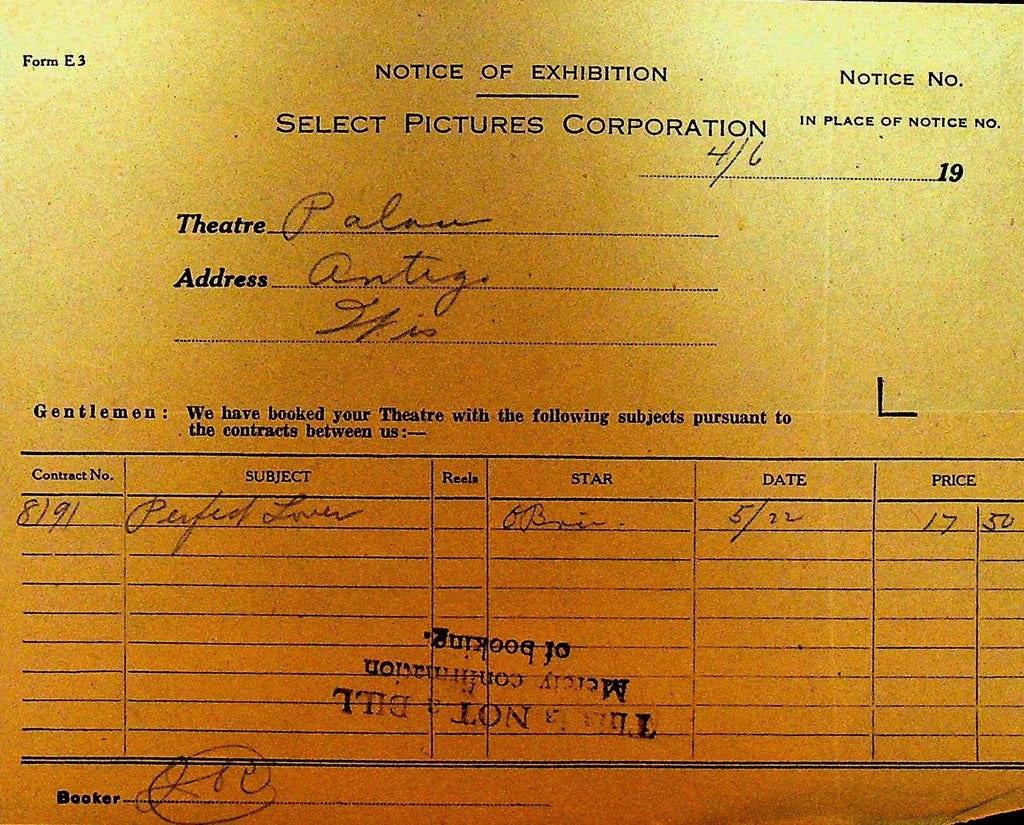 Form E 3
NOTICE OF EXHIBITION
NOTICE NO.
SELECT PICTURES CORPORATION
IN PLACE OF NOTICE NO.
4/6 19
Theatre Palace
Address Antigo
Wis
Gentlemen: We have booked your Theatre with the following subjects pursuant to
the contracts between us:—
Contract No. SUBJECT Reels STAR DATE PRICE
8191 Perfect Lover OBrien 5/22 17 50
This is NOT a BILL
Merely confirmation
of booking.
Booker